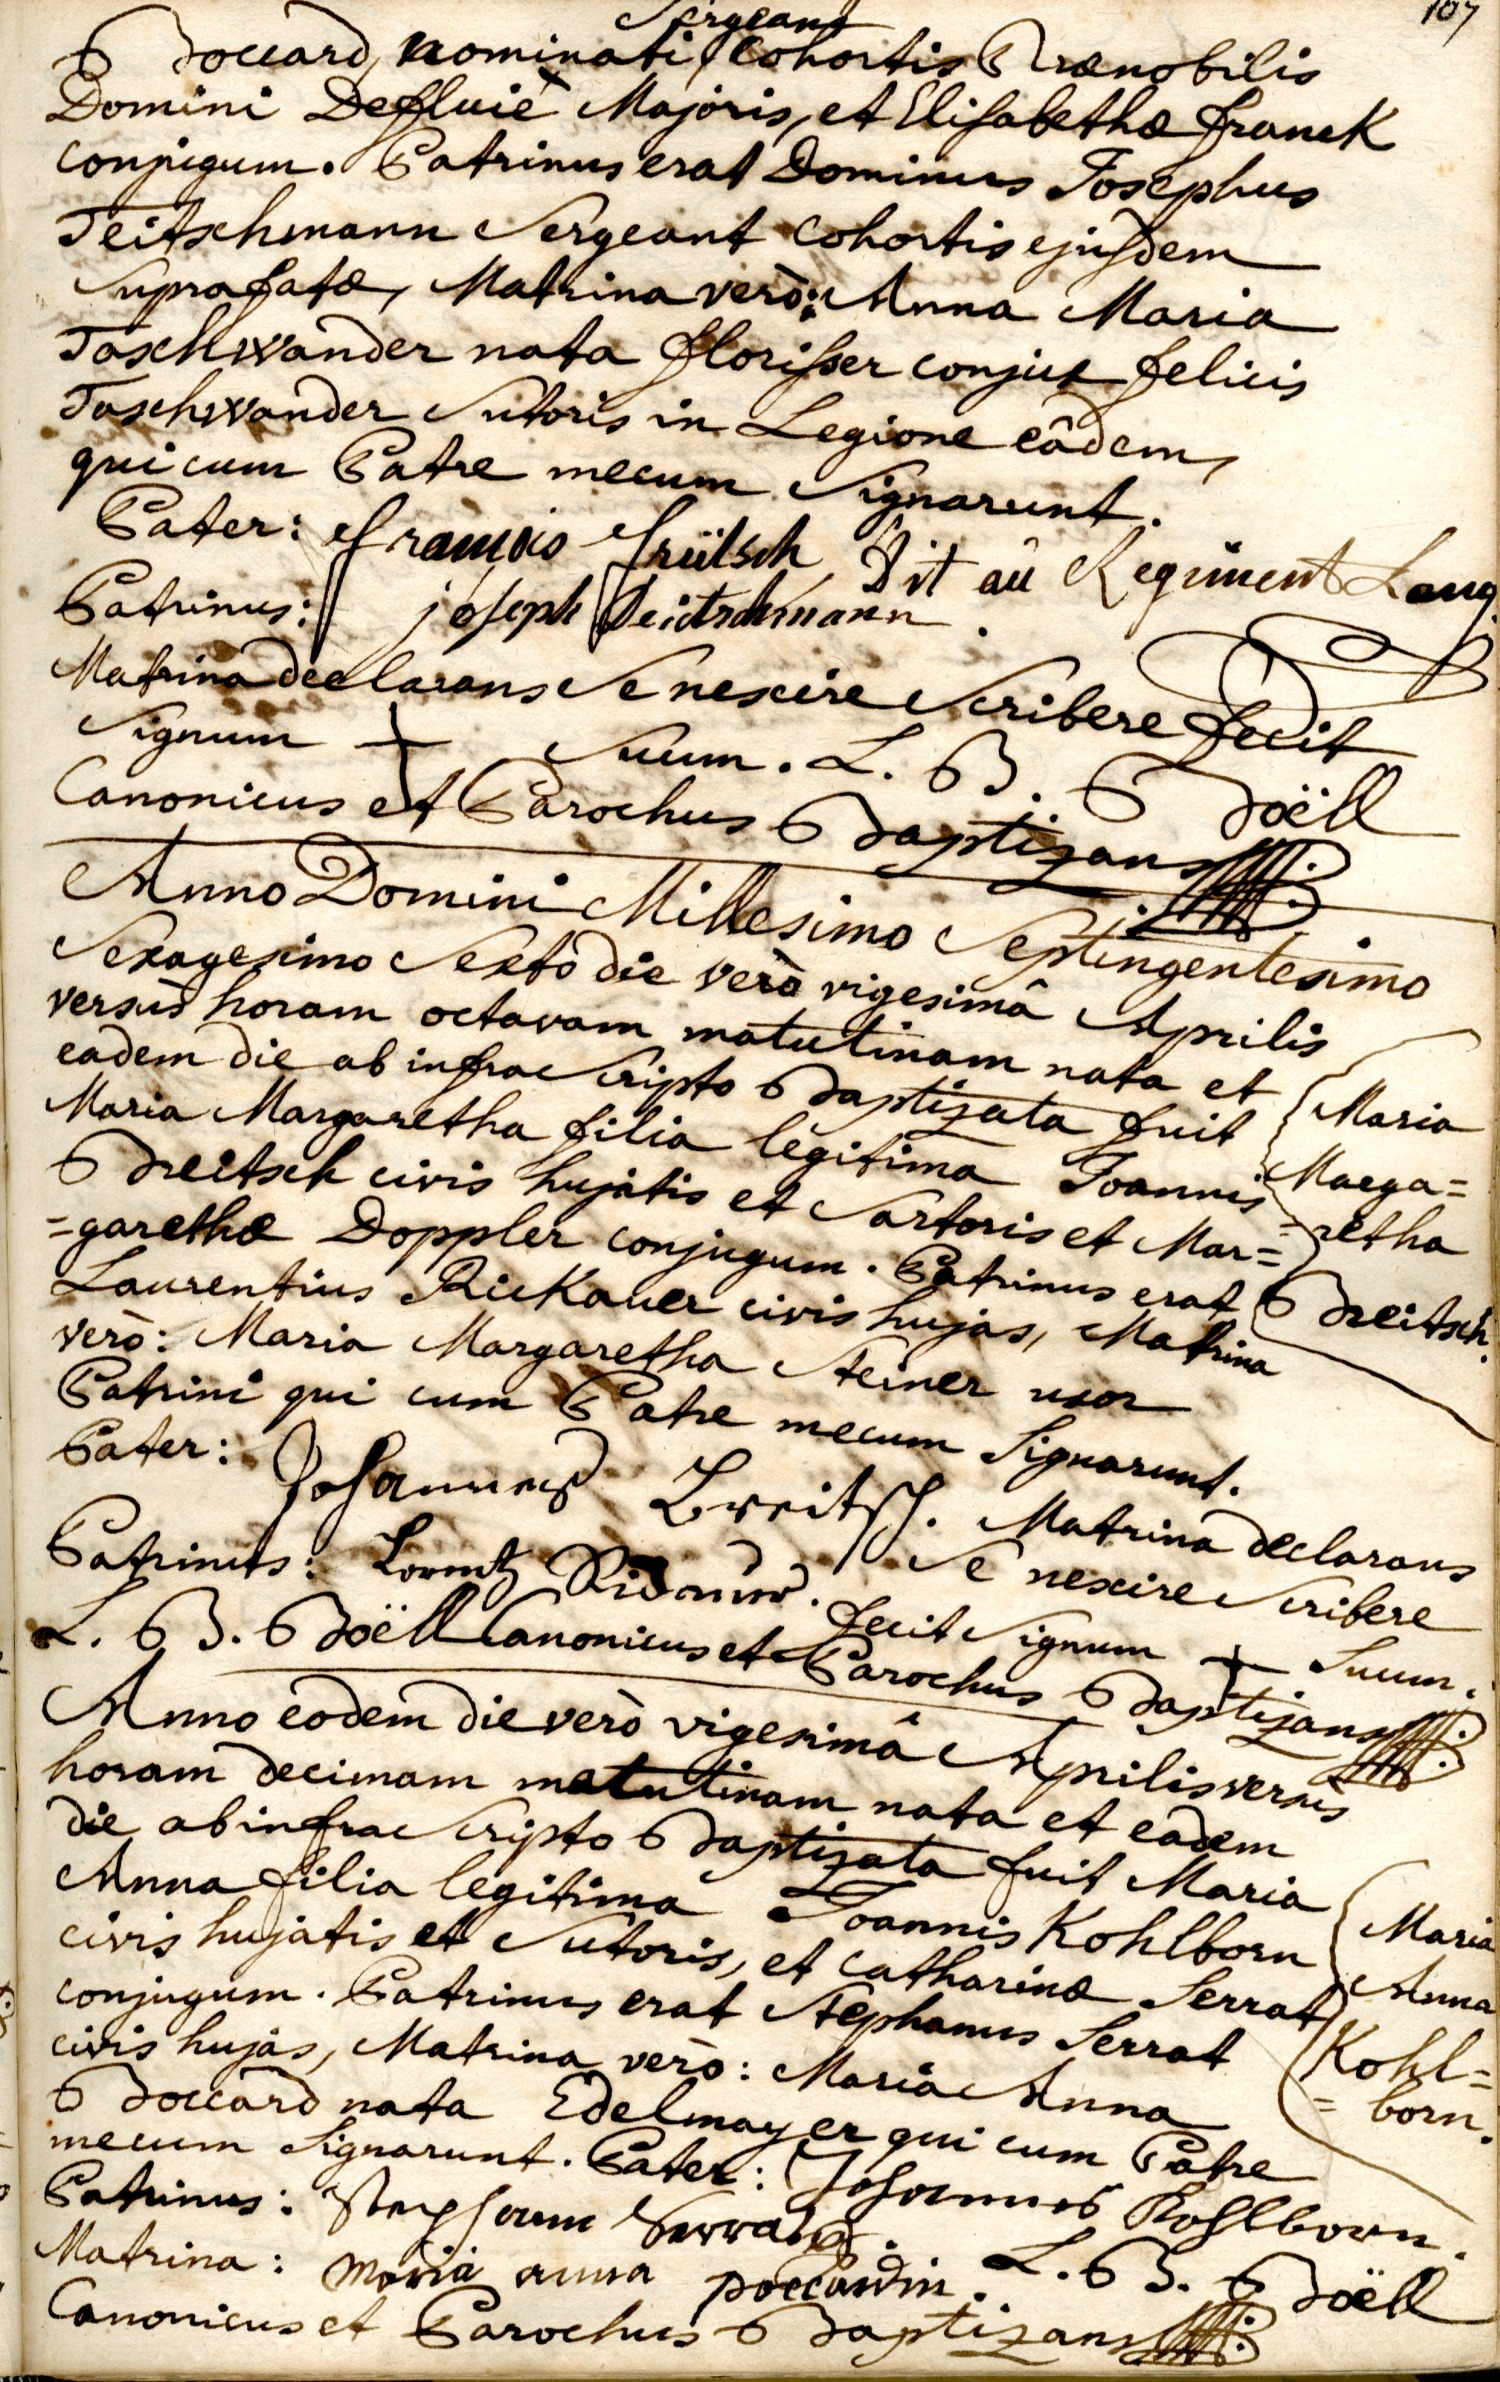 107
Sergeant
Boccard, nominati cohortis Prænobilis
Domini Deffluië Majoris, et Elisabethæ Franck
conjugum. Patrinus erat Dominus Josephus
Teitschmann Sergeant cohortis ejusdem
suprafatæ, Matrina verò: Anna Maria
Taschwander nata Florisser conjux Felicis
Taschwander Sutoris in Legione eâdem,
qui cum Patre mecum Signarunt.
Pater: François Dit au Regiment
Patrinus: joseph Deitschmann.
Matrina declarans Se nescire Scribere fecit
Signum + Suum. L. B. Boëll
Canonicus et Parochus Baptizans
Anno Domini Millesimo Septingentesimo
Sexagesimo Sexto die verò vigesimâ Aprilis
versùs horam octavam matutinam nata et
eadem die ab infra Scripto Baptizata fuit
Maria Margaretha filia legitima Joannis
Breitsch civis hujatis et Sartoris et Mar=
=garethæ Doppler conjugum. Patrinus erat
Laurentius Rickauer civis hujas, Matrina
verò: Maria Margaretha Steiner uxor
Patrini qui cum Patre mecum Signarunt.
Maria
Marga=
=retha
Breitsch.
Pater: Johannes Breitsch. Matrina declarans
Patrinus: Lorentz Se nescire Scribere
fecit Signum + Suum.
L. B. Boëll Canonicus et Parochus Baptizans
Anno eodem die verò vigesimâ Aprilis versùs
horam decimam matutinam nata et eadem
die ab infra Scripto Baptizata fuit Maria
Anna filia legitima Joannis Kohlborn
civis hujatis et Sutoris, et Catharinæ Serrat
conjugum. Patrinus erat Stephanus Serrat
civis hujas, Matrina verò: Maria Anna
Boccard nata Edelmayer qui cum Patre
mecum Signarunt. Pater: Johannes Kohlborn.
Maria
Anna
Kohl=
=born.
Patrinus: Stephann Serrat.
Matrina: maria anna poccardin. L. B. Boëll
Canonicus et Parochus Baptizans